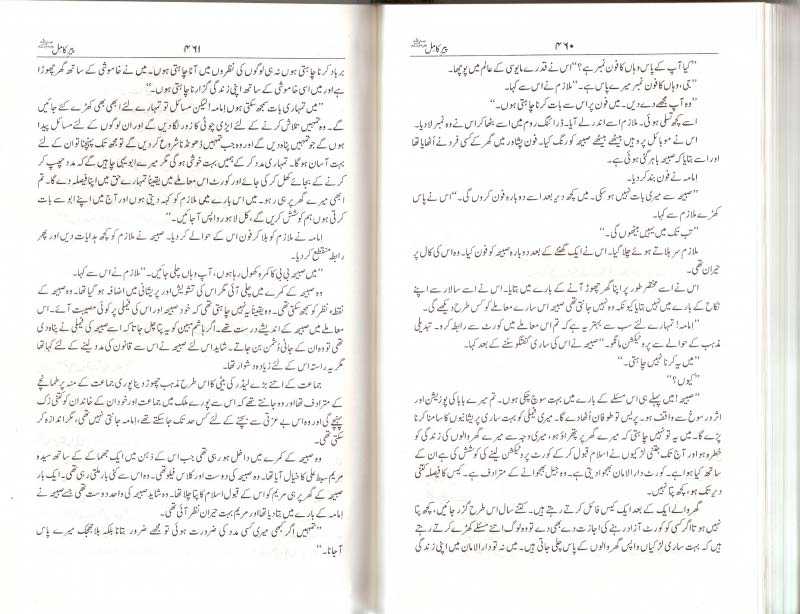 ۴۶۰ پیر کامل
"کیا آپ کے پاس وہاں کا فون نمبر ہے؟" اس نے قدرے مایوسی کے عالم میں پوچھا۔
"جی، وہاں کا فون نمبر میرے پاس ہے۔" ملازم نے اس سے کہا۔
"وہ آپ مجھے دے دیں۔ میں فون پر اس سے بات کرنا چاہتی ہوں۔"
اسے کچھ تسلی ہوئی۔ ملازم اسے اندر لے آیا۔ ڈرائنگ روم میں اسے بٹھا کر اس نے وہ نمبر لا دیا۔
اس نے موبائل پر وہیں بیٹھے بیٹھے صبیحہ کو رنگ کیا۔ فون پشاور میں گھر کے کسی فرد نے اٹھایا تھا
اور اسے بتایا کہ صبیحہ باہر گئی ہوئی ہے۔
امامہ نے فون بند کر دیا۔
"صبیحہ سے میری بات نہیں ہو سکی۔ میں کچھ دیر بعد اسے دوبارہ فون کروں گی۔" اس نے پاس
کھڑے ملازم سے کہا۔
"تب تک میں یہیں بیٹھوں گی۔"
ملازم سر ہلاتے ہوئے چلا گیا۔ اس نے ایک گھنٹے کے بعد دوبارہ صبیحہ کو فون کیا۔ وہ اس کی کال پر
حیران تھی۔
اس نے اسے مختصر طور پر اپنا گھر چھوڑ آنے کے بارے میں بتایا۔ اس نے اسے سالار سے اپنے
نکاح کے بارے میں نہیں بتایا کیونکہ وہ نہیں جانتی تھی صبیحہ اس سارے معاملے کو کس طرح دیکھے گی۔
"امامہ! تمہارے لئے سب سے بہتر یہ ہے کہ تم اس معاملے میں کورٹ سے رابطہ کرو۔ تبدیلی
مذہب کے حوالے سے پروٹیکشن مانگو۔" صبیحہ نے اس کی ساری گفتگو سننے کے بعد کہا۔
"میں یہ کرنا نہیں چاہتی۔"
"کیوں؟"
"صبیحہ! میں پہلے ہی اس مسئلے کے بارے میں بہت سوچ چکی ہوں۔ تم میرے بابا کی پوزیشن اور
اثر و رسوخ سے واقف ہو۔ پریس تو طوفان اٹھا دے گا۔ میری فیملی کو بہت ساری پریشانیوں کا سامنا کرنا
پڑے گا۔ میں یہ تو نہیں چاہتی کہ میرے گھر پر پتھراؤ ہو، میری وجہ سے میرے گھر والوں کی زندگی کو
خطرہ ہو اور آج تک جتنی لڑکیوں نے اسلام قبول کر کے کورٹ پروٹیکشن لینے کی کوشش کی ہے ان کے
ساتھ کیا ہوا ہے۔ کورٹ دارالامان بھجوا دیتی ہے۔ وہ جیل بھجوانے کے مترادف ہے۔ کیس کا فیصلہ کتنی
دیر تک ہو، کچھ پتا نہیں۔
گھر والے ایک کے بعد ایک کیس فائل کرتے رہتے ہیں۔ کتنے سال اس طرح گزر جائیں، کچھ پتا
نہیں ہوتا اگر کسی کو کورٹ آزاد رہنے کی اجازت دے بھی دے تو وہ لوگ اتنے مسئلے کھڑے کرتے رہتے
ہیں کہ بہت ساری لڑکیاں واپس گھر والوں کے پاس چلی جاتی ہیں۔ میں نہ تو دارالامان میں اپنی زندگی
۴۶۱ پیر کامل
برباد کرنا چاہتی ہوں نہ ہی لوگوں کی نظروں میں آنا چاہتی ہوں۔ میں نے خاموشی کے ساتھ گھر چھوڑا
ہے اور میں اسی خاموشی کے ساتھ اپنی زندگی گزارنا چاہتی ہوں۔"
"میں تمہاری بات سمجھ سکتی ہوں امامہ! لیکن مسائل تو تمہارے لئے ابھی بھی کھڑے کئے جائیں
گے۔ وہ تمہیں تلاش کرنے کے لئے ایڑی چوٹی کا زور لگا دیں گے اور ان لوگوں کے لئے مسائل پیدا
ہوں گے جو تمہیں پناہ دیں گے اور وہ جب تمہیں ڈھونڈنا شروع کر دیں گے تو مجھ تک پہنچنا تو ان کے لئے
بہت آسان ہو گا۔ تمہاری مدد کر کے ہمیں بہت خوشی ہو گی مگر میرے ابو یہی چاہیں گے کہ مدد چھپ کر
کرنے کے بجائے کھل کر کی جائے اور کورٹ اس معاملے میں یقیناً تمہارے حق میں اپنا فیصلہ دے گا۔ تم
ابھی میرے گھر پر ہی رہو۔ میں اس بارے میں ملازم کو کہہ دیتی ہوں اور آج میں اپنے ابو سے بات
کرتی ہوں ہم کوشش کریں گے، کل لاہور واپس آ جائیں۔"
امامہ نے ملازم کو بلا کر فون اس کے حوالے کر دیا۔ صبیحہ نے ملازم کو کچھ ہدایات دیں اور پھر
رابطہ منقطع کر دیا۔
"میں صبیحہ بی بی کا کمرہ کھول رہا ہوں، آپ وہاں چلی جائیں۔" ملازم نے اس سے کہا۔
وہ صبیحہ کے کمرے میں چلی آئی مگر اس کی تشویش اور پریشانی میں اضافہ ہو گیا تھا۔ وہ صبیحہ کے
نقطہ نظر کو سمجھ سکتی تھی۔ وہ یقیناً یہ نہیں چاہتی تھی کہ خود صبیحہ اور اس کی فیملی پر کوئی مصیبت آئے۔ اس
معاملے میں صبیحہ کے اندیشے درست تھے۔ اگر ہاشم مبین کو یہ پتا چل جاتا کہ اسے صبیحہ کی فیملی نے پناہ دی
تھی تو وہ ان کے جانی دشمن بن جاتے۔ شاید اس لئے صبیحہ نے اس سے قانون کی مدد لینے کے لئے کہا تھا
مگر یہ راستہ اس کے لئے زیادہ دشوار تھا۔
جماعت کے اتنے بڑے لیڈر کی بیٹی کا اس طرح مذہب چھوڑ دینا پوری جماعت کے منہ پر طمانچے
کے مترادف تھا اور وہ جانتے تھے کہ اس سے پورے ملک میں جماعت اور خود ان کے خاندان کو کتنی زک
پہنچے گی اور وہ اس بے عزتی سے بچنے کے لئے کس حد تک جا سکتے تھے، امامہ جانتی نہیں تھی، مگر اندازہ کر
سکتی تھی۔
وہ صبیحہ کے کمرے میں داخل ہو رہی تھی جب اس کے ذہن میں ایک جھماکے کے ساتھ سیدہ
مریم سبط علی کا خیال آیا تھا۔ وہ صبیحہ کی دوست اور کلاس فیلو تھی۔ وہ اس سے کئی بار ملتی رہی تھی۔ ایک بار
صبیحہ کے گھر پر ہی مریم کو اس کے قبول اسلام کا پتا چلا تھا۔ وہ شاید صبیحہ کی واحد دوست تھی جسے صبیحہ نے
امامہ کے بارے میں بتا دیا تھا اور مریم بہت حیران نظر آئی تھی۔
"تمہیں اگر کبھی میری کسی مدد کی ضرورت ہوئی تو مجھے ضرور بتانا بلکہ بلا جھجک میرے پاس
آ جانا۔"